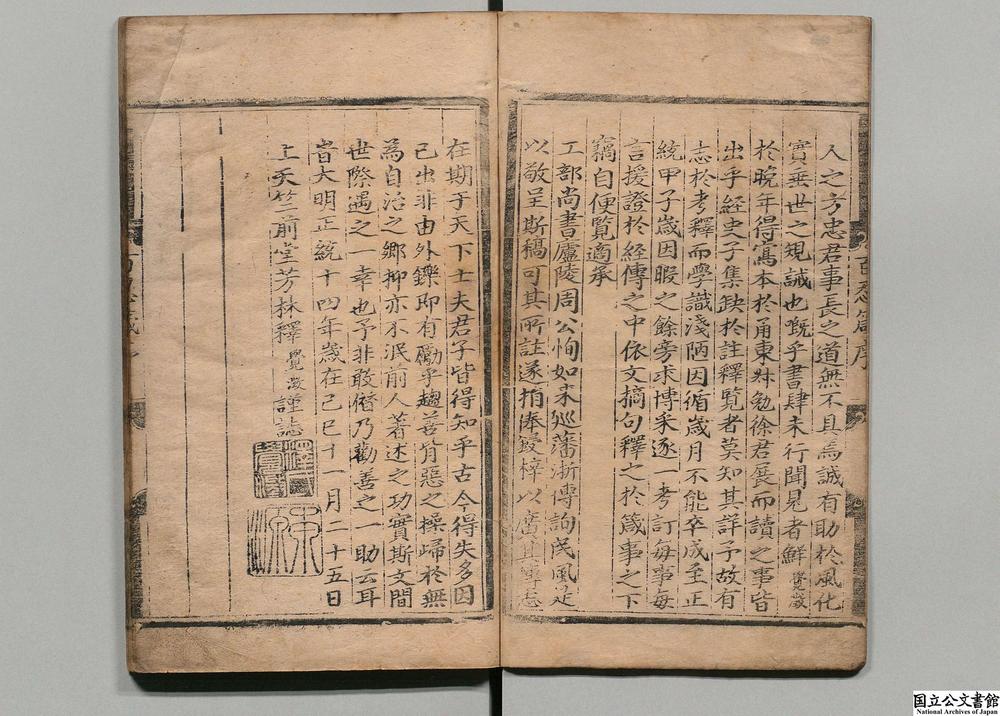 人之方忠君事長之道無不具焉誠有助於風化
實垂世之規誡也慨乎書肆未行聞見者鮮覺澂
於晚年得寫本於甬東好勉徐君展而讀之事皆
出乎經史子集缺於註釋覽者莫知其詳予故有
志於考釋而學識淺陋因循歲月不能卒成至正
統甲子歲因暇之餘旁求博采逐一考訂每事每
言援證於經傳之中依文摘句釋之於箴事之下
竊自便覽適承
工部尚書廬陵周公恂如來巡藩浙傳詢民風是
以敬呈斯稿可其所註遂捐俸鋟梓以廣其傳志
在期于天下士夫君子皆得知乎古今得失多因
己出非由外鑠即有勵乎趨善背惡之操歸於無
為自治之鄉抑亦不泯前人著述之功實斯文間
世際遇之一幸也予非敢僭乃勸善之一助云耳
旹大明正統十四年歲在己巳十一月二十五日
上天竺前堂芳林釋覺澂謹誌
百忍箴序
国立公文書館
National Archives of Japan